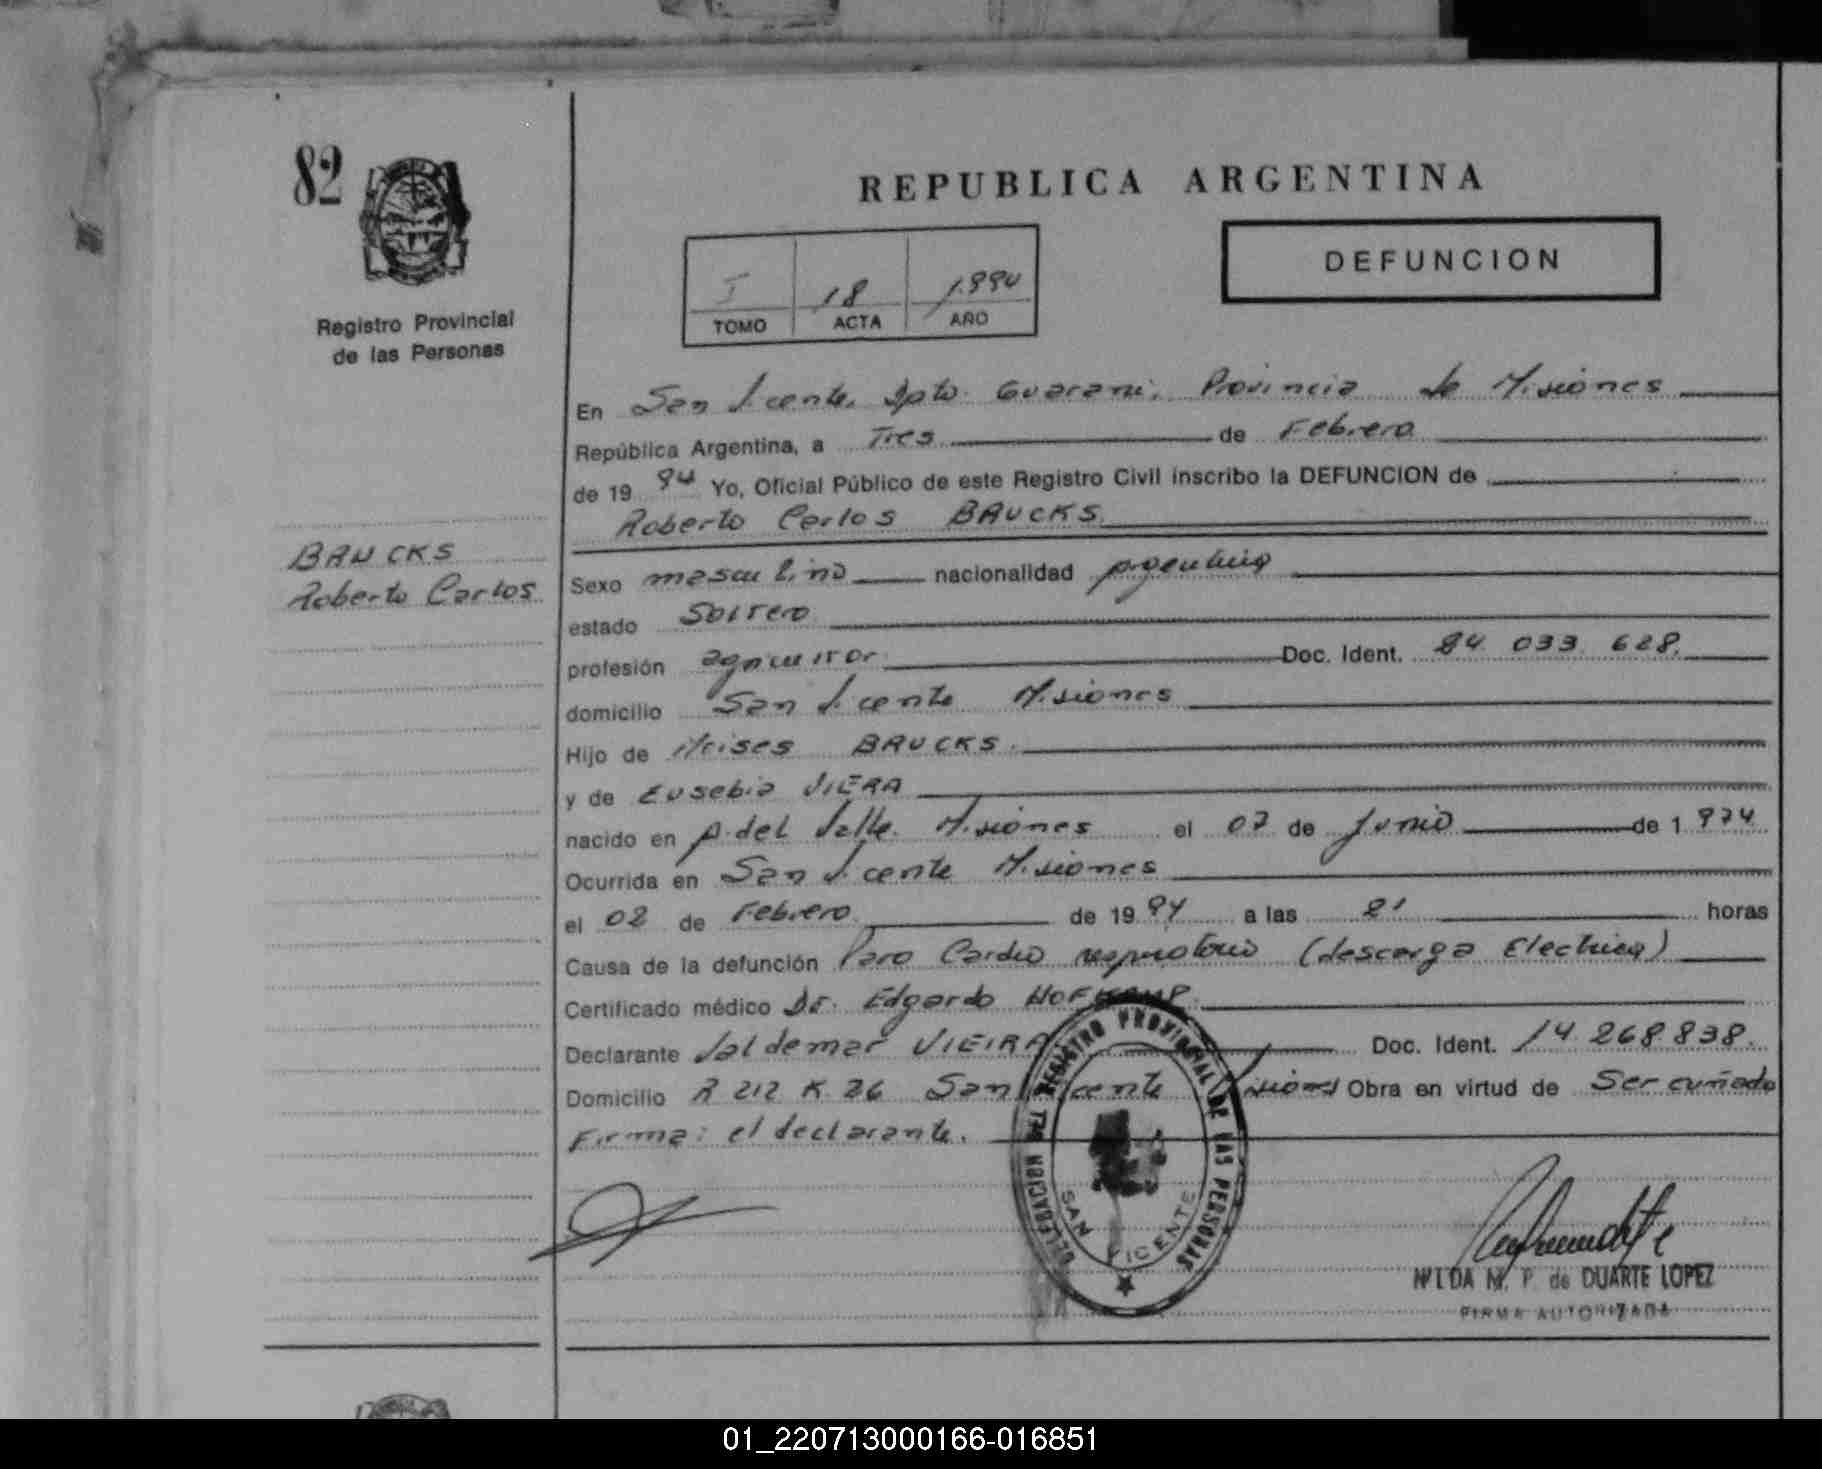 82
REPUBLICA ARGENTINA
DEFUNCION
I 18 1.994
TOMO ACTA AÑO
Registro Provincial
de las Personas
En San Vicente, Dpto. Guarani, Provincia de Misiones
República Argentina, a Tres de Febrero
de 19 94 Yo, Oficial Público de este Registro Civil inscribo la DEFUNCION de
Roberto Carlos BAUCKS
BAUCKS
Roberto Carlos
Sexo masculino nacionalidad argentina
estado Soltero
profesión agricultor Doc. Ident. 24 033 628
domicilio San Vicente Misiones
Hijo de Moises BAUCKS.
y de Eusebia VIERA
nacido en A. del Valle Misiones el 07 de Junio de 1 974
Ocurrida en San Vicente Misiones
el 02 de Febrero de 19 94 a las 21 horas
Causa de la defunción Paro Cardio respiratorio (descarga Electrica)
Certificado médico Dr. Edgardo HOFKAMP.
Declarante Valdemar VIEIRA Doc. Ident. 14.268.838.
Domicilio R 212 K. 26 San Vicente Misiones Obra en virtud de Ser cuñado
Firma: el declarante.
DELEGACION DEL REGISTRO PROVINCIAL DE LAS PERSONAS
SAN VICENTE
NILDA M. P. de DUARTE LOPEZ
FIRMA AUTORIZADA
01_220713000166-016851